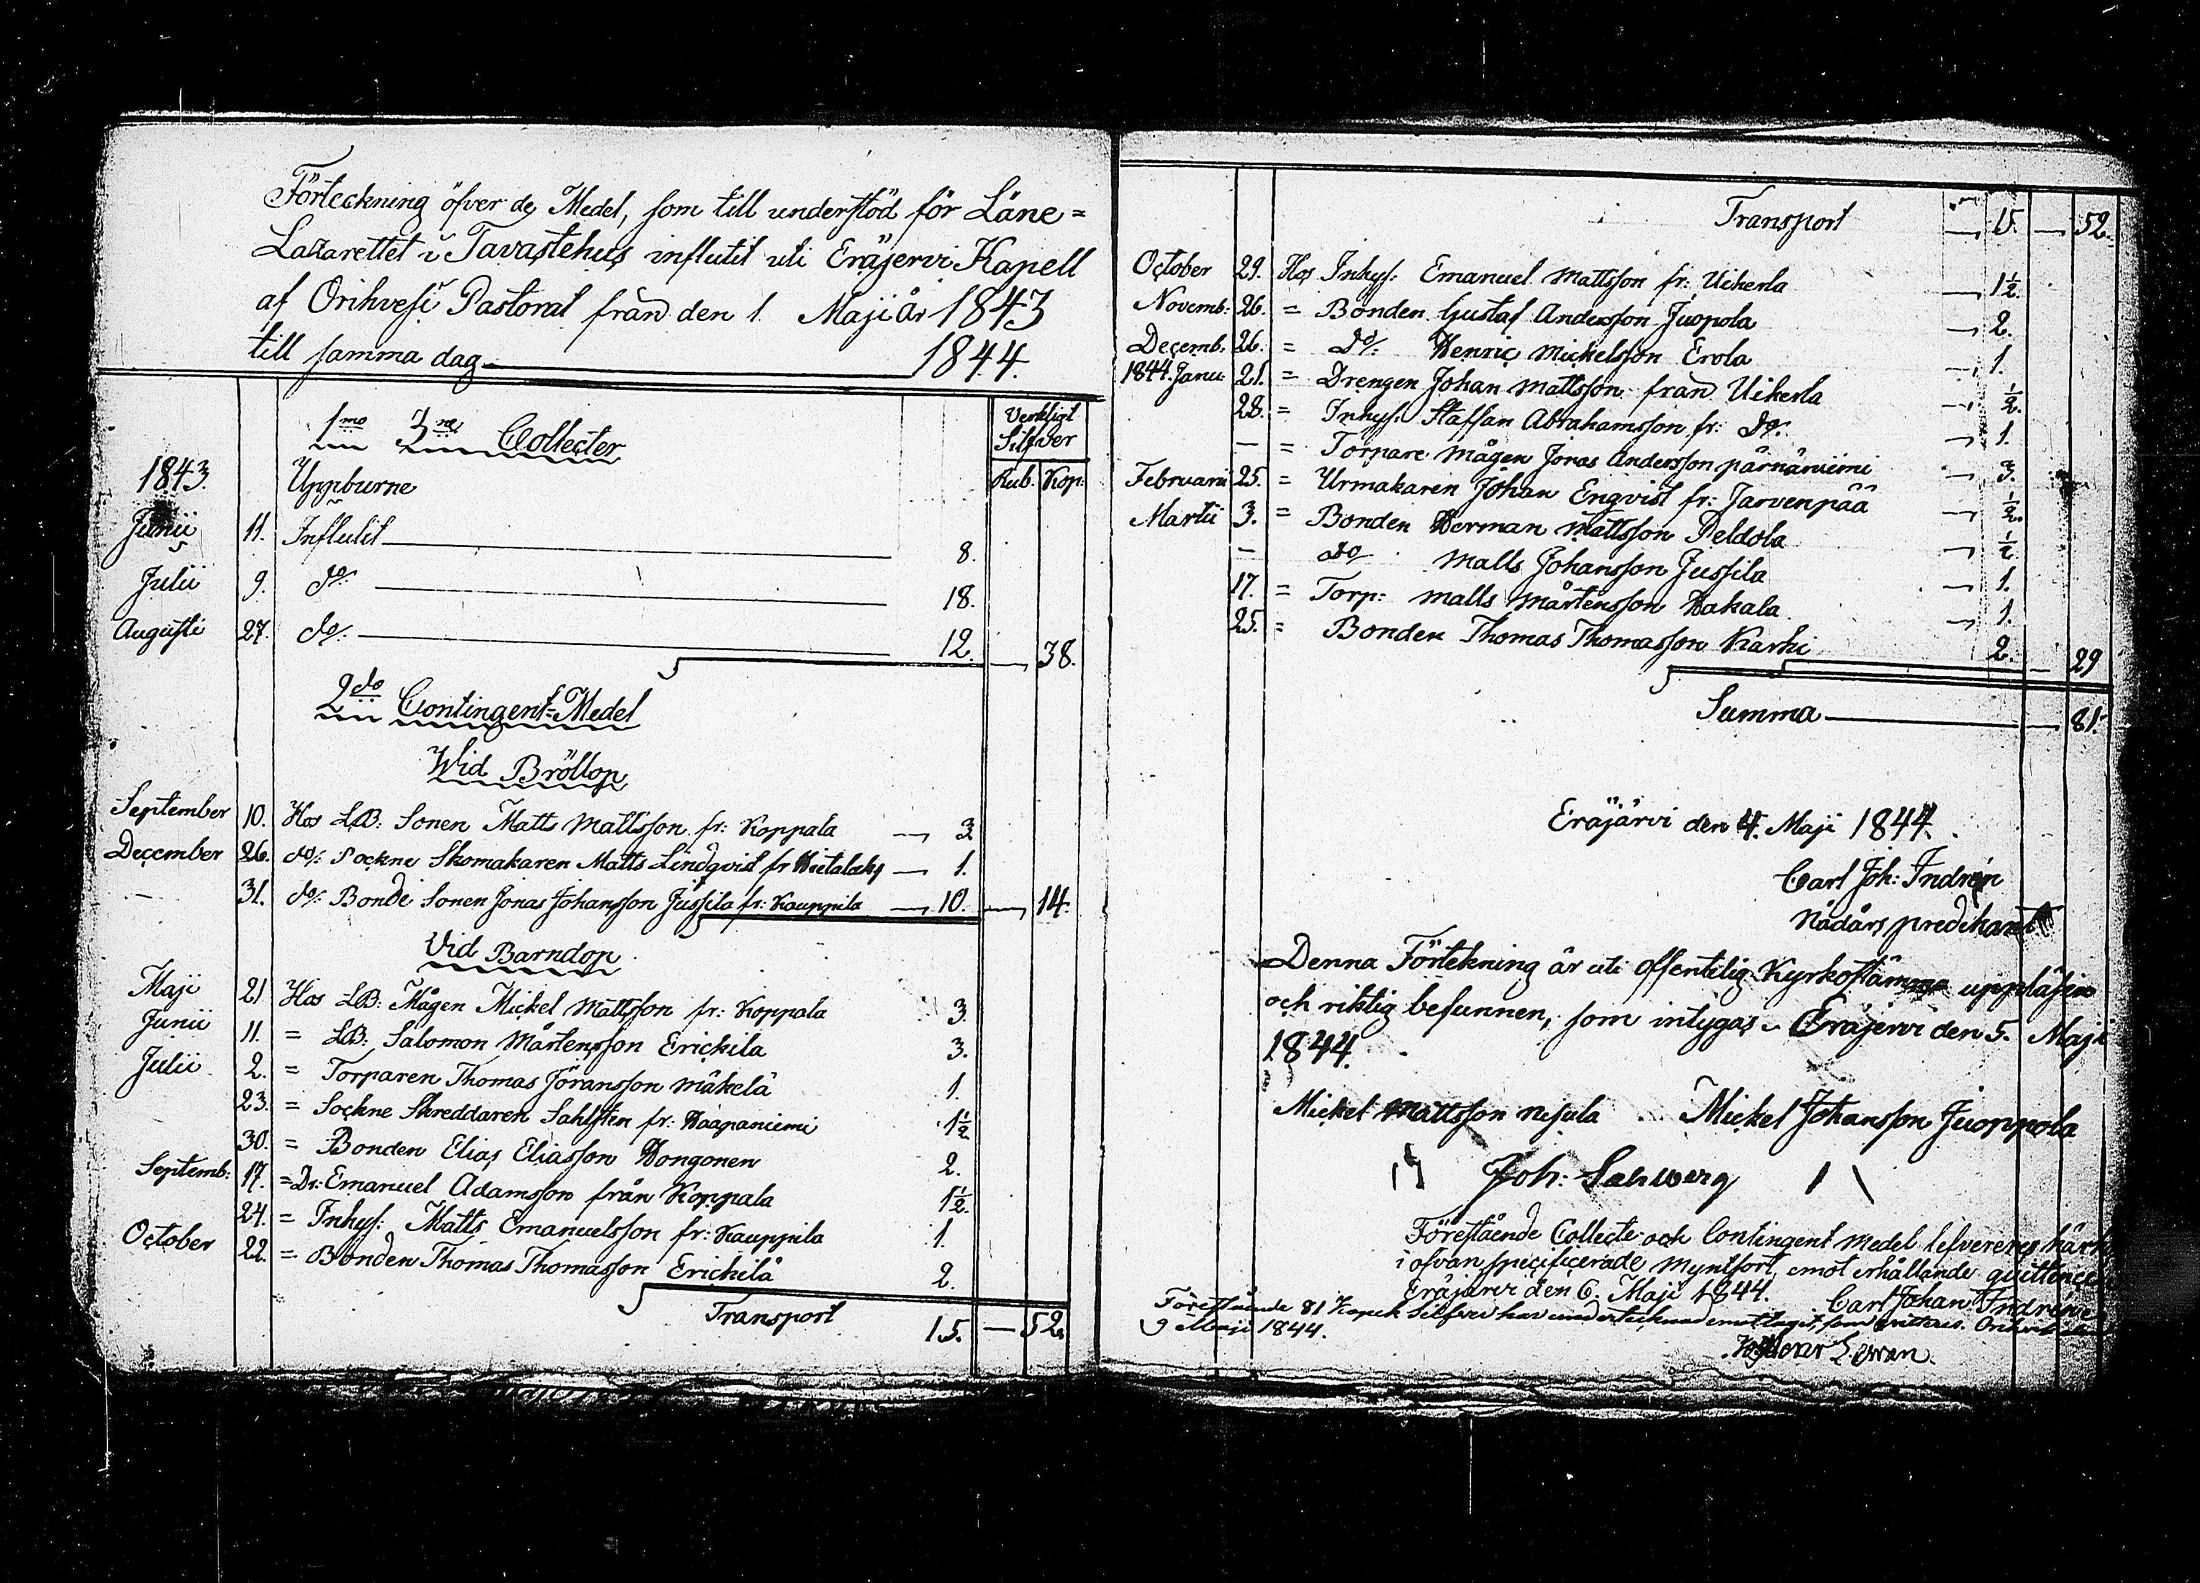 Förteckning öfver de Medel, som till understöd för Läne=
Lazarettet i Tavastehus influtit uti Eräjervi Kapell
af Orihvesi Pastorat från den 1. Maji år 1843
till samma dag 1844.
Verkligt
Silfver
Rub. Kop:
1mo Collecter
1843. Uppburne
Junii 11. Influtit 8.
Julii 9. do/: 18.
Augusti 27. do/: 12. — 38.
2do Contingent=Medel
Wid Bröllop
September 10. Hos LB: Sonen Matts Mattsson fr: Koppala — 3
December 26. do/: Sockne Skomakaren Matts Lindqvist fr — 1.
31. do/: Bonde Sonen Jonas Johansson Jussila fr: Kauppila — 10. — 14.
Vid Barndop
Maji 21 Hos LB: Mågen Mickel Mattsson fr: Koppala 3.
Junii 11. = LB: Salomon Mårtensson Erickila 3.
Julii 2. = Torparen Thomas Jöransson Mäkelä 1.
23. = Sockne Skreddaren Sahlsten fr: Haapaniemi 1½
30. = Bonden Elias Eliasson Hongonen 2.
Septemb: 17. = Dr: Emanuel Adamsson från Koppala 1½.
24. = Inhys: Matts Emanuelsson fr: Kauppila 1.
October 22. = Bonden Thomas Thomasson Erickilä 2.
Transport 15. — 52.
Transport — 15. — 52.
October 29. Hos Inhys: Emanuel Mattsson fr: Uiherla — 1½.
Novemb: 26. = Bonden Gustaf Andersson Juopola — 2.
Decemb. 26. = do/: Henric Mickelsson Erola — 1.
1844. Janu: 21. = Drengen Johan Mattsson från Uiherla — ½.
28. = Inhys: Staffan Abrahamsson fr: do: — 1.
— = Torpare Mågen Jonas Andersson Pärnäniemi — 3.
Februarii 25. = Urmakaren Johan Engvist fr: Jarvenpää — ½.
Martii 3. = Bonden Herman Mattsson Peldola — ½.
— do Matts Johansson Jussila — 1.
17. = Torp: Matts Mårtensson Hakala — 1.
25. = Bonden Thomas Thomasson Karhi 2. — 29
Summa — 81.
Eräjärvi den 4. Maji 1844.
Carl Joh: Indrén
Nådårs predikant
Denna Förtekning är uti offentelig Kyrkostämma uppläsen
och riktig befunnen, som intygas. Eräjervi den 5. Maji
1844.
Mickel Mattsson Mickel Johansson Juoppola
Joh: Sahlberg
Förestående Collecte och Contingent medel lefvereres
i ofvan specificerade myntsort, emot erhållande quittence
Eräjärvi den 6. Maji 1844. Carl Johan Indrén
Förestående 81 Kopek Silfver har undertecknad emottagit, som qvitteras.
9 Maji 1844.